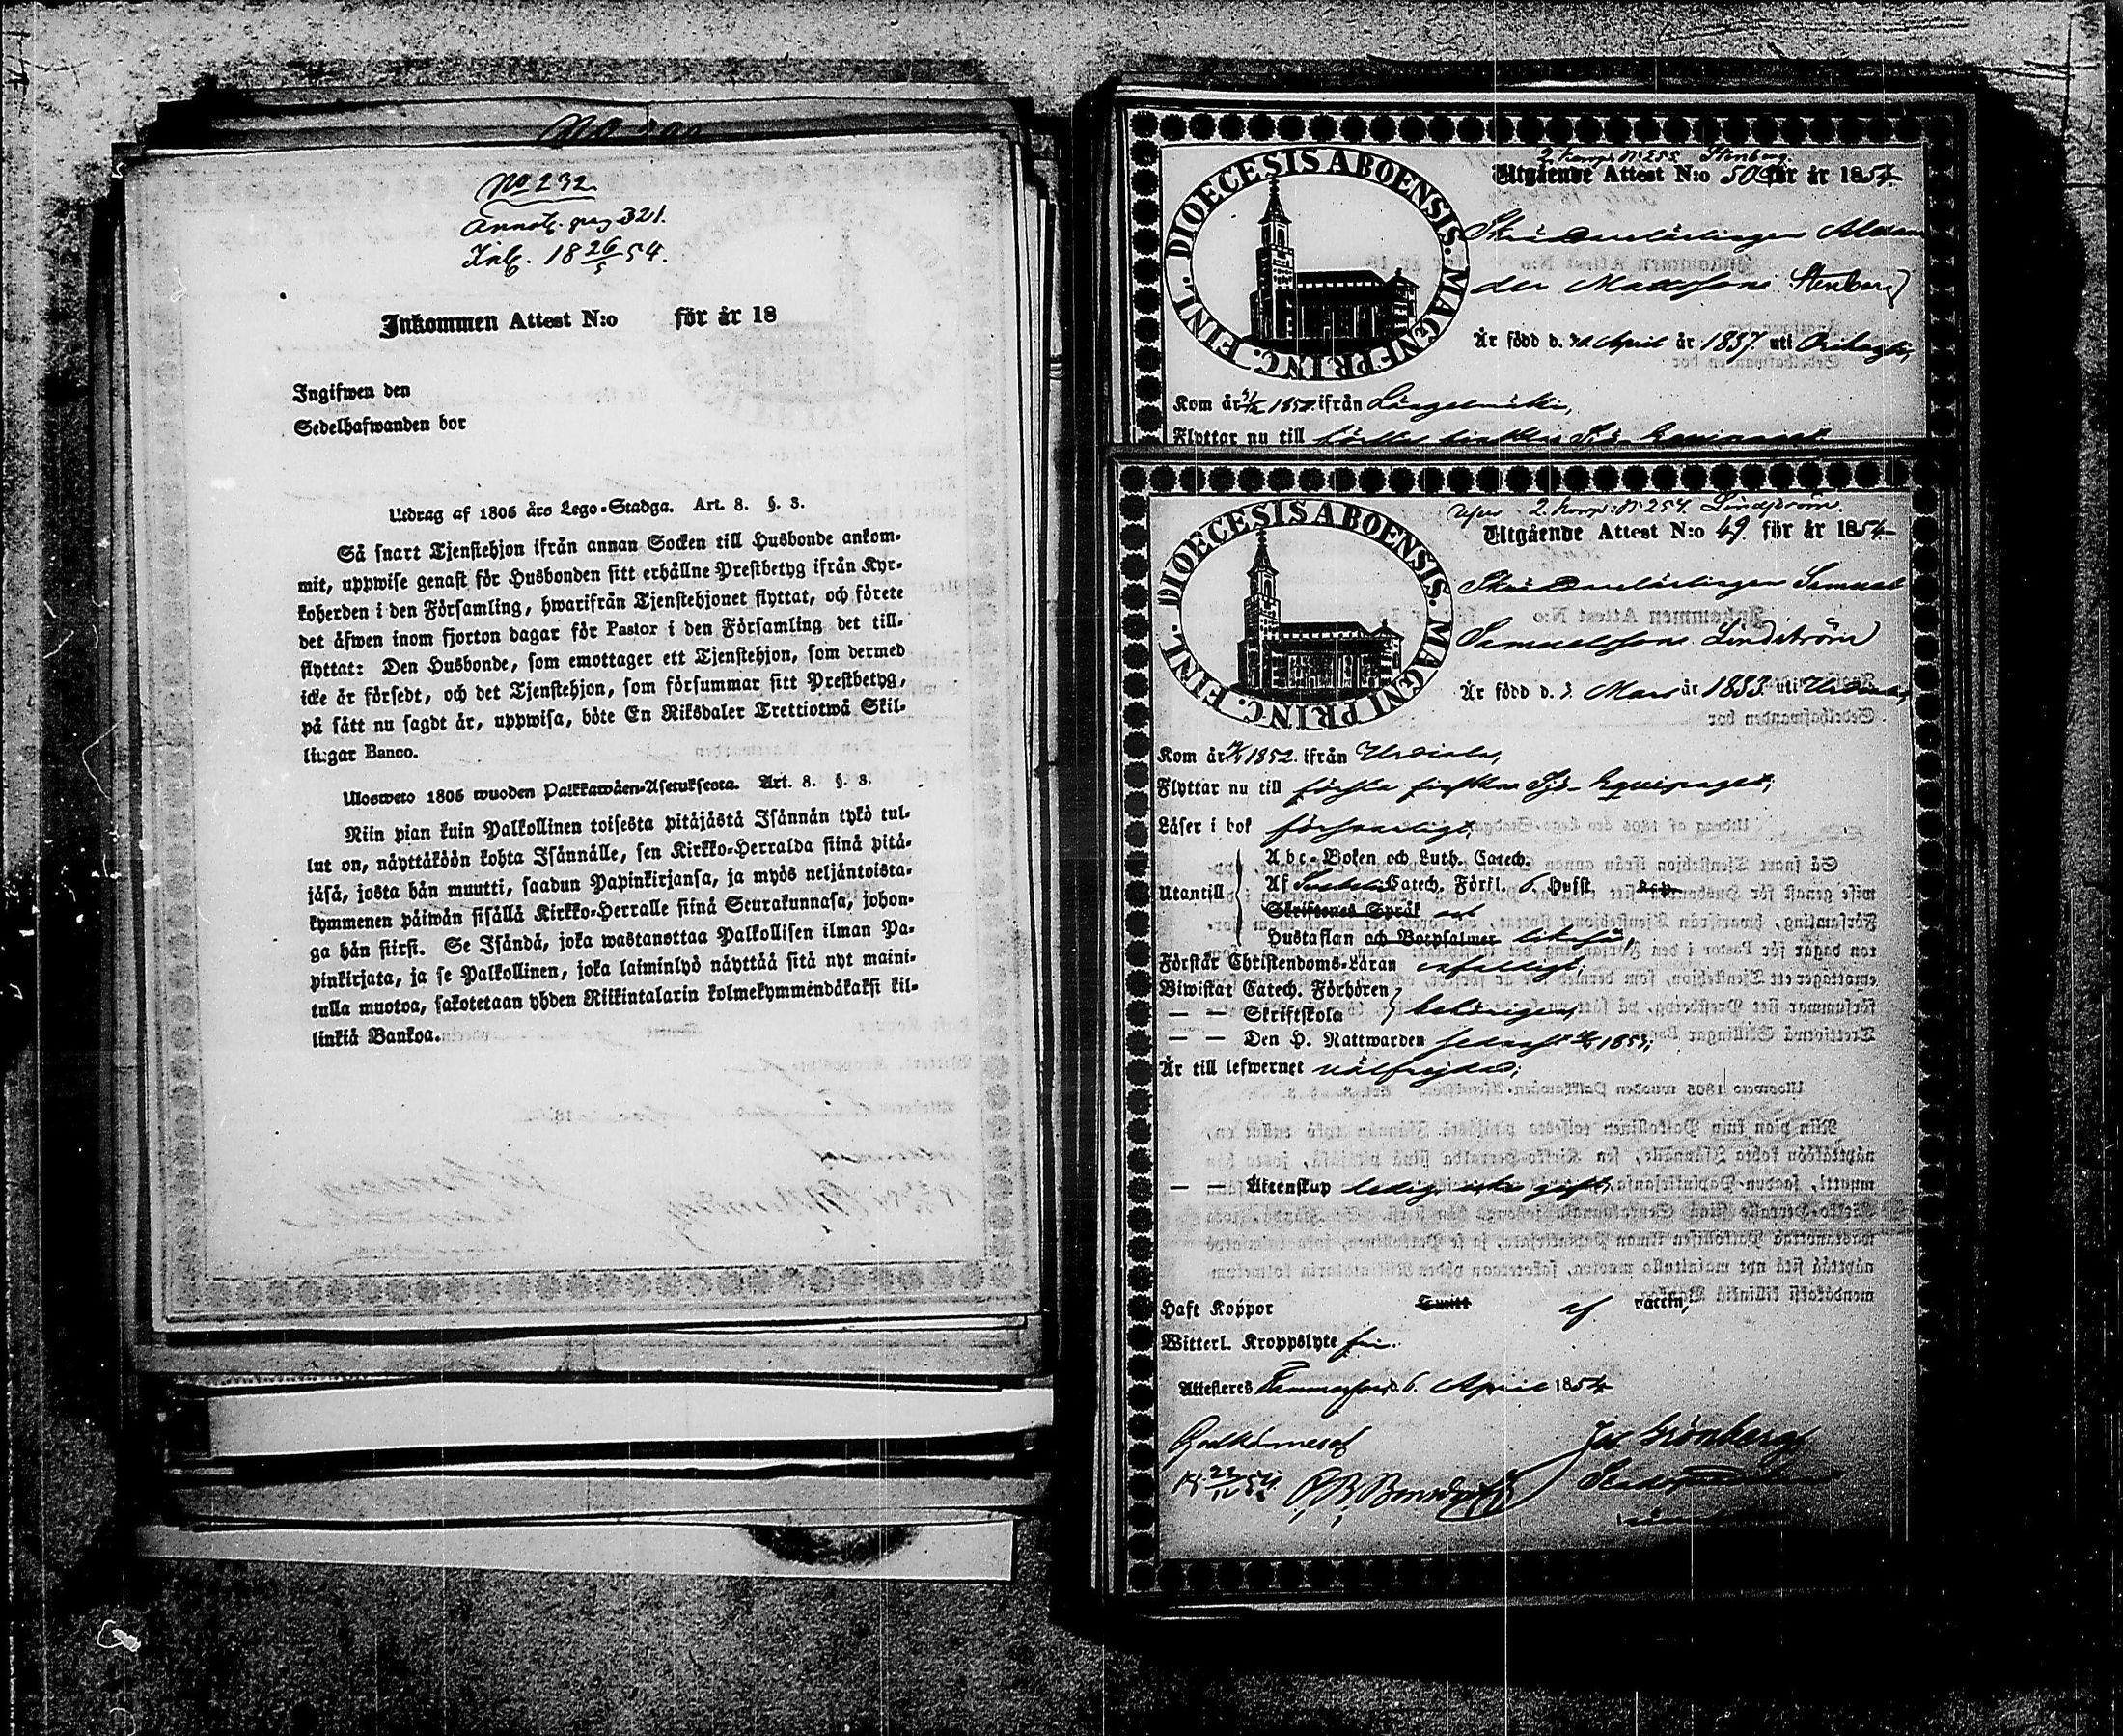 No 232.
Annot. pag 321.
Inl. 18 26/5 54.
Inkommen Attest N:o för år 18
Ingifwen den
Sedelhafwanden bor
Utdrag af 1805 års Lego-Stadga. Art. 8. §. 3.
Så snart Tjenstehjon ifrån annan Socken till Husbonde ankom-
mit, uppwise genast för Husbonden sitt erhållne Prestbetyg ifrån Kyr-
koherden i den Församling, hwarifrån Tjenstehjonet flyttat, och förete
det äfwen inom fjorton dagar för Pastor i den Församling det till-
flyttat: Den Husbonde, som emottager ett Tjenstehjon, som dermed
icke är försedt, och det Tjenstehjon, som försummar sitt Prestbetyg,
på sätt nu sagdt är, uppwisa, böte En Riksdaler Trettiotwå Skil-
lingar Banco.
Ulosweto 1805 wuoden Palkkawäen-Asetuksesta. Art. 8. §. 3.
Niin pian kuin Palkollinen toisesta pitäjästä Isännän tykö tul-
lut on, näyttäköön kohta Isännälle, sen Kirkko-Herralda siinä pitä-
jäsä, josta hän muutti, saadun Papinkirjansa, ja myös neljäntoista-
kymmenen päiwän sisällä Kirkko-Herralle siinä Seurakunnasa, johon-
ga hän siirsi. Se Isändä, joka wastanottaa Palkollisen ilman Pa-
pinkirjata, ja se Palkollinen, joka laiminlyö näyttää sitä nyt maini-
tulla muotoa, sakotetaan yhden Riikintalarin kolmekymmendäkaksi kil-
linkiä Bankoa.
2 Komp. N:255 Stenberg.
Utgående Attest N:o 50 för år 1854
DIOECESIS ABOENSIS. MAGNI PRINC. FINL.
Skräddarelärlingen Alexan
der Mattsson Stenberg
Är född d. April år 1837 uti Orihvesi,
Kom år 1852 ifrån Längelmäki,
Flyttar nu till första finska Sjö-Equipaget
2. Komp. N:254. Lindström.
Utgående Attest N:o 49 för år 1854
DIOECESIS ABOENSIS. MAGNI PRINC. FINL.
Skräddarelärlingen Samuel
Samuelsson Lindström
Är född d. 3. Mars år 1833 uti Urdiala,
Kom år 1852. ifrån Urdiala,
Flyttar nu till första finska Sjö-Equipaget,
Läser i bok försvarligt,
Utantill
Abc-Boken och Luth. Catech.
Af Svebelii Catech. Förkl. 6. Hufst.
Skriftenes Språk
Hustaflan och Botpsalmer likaså,
Förstår Christendoms-Läran enfaldigt,
Biwistat Catech. Förhören
— — Skriftskola
behörigen,
— — Den H. Nattwarden senast 1853,
Är till lefwernet välfrejdad,
— — Äktenskap ledig, icke gift,
Haft Koppor Twitt af vaccin,
Witterl. Kroppslyte fri.
Attesteras Tammerfors d. 6. April 1854
Godkännes af
Jac. Grönberg